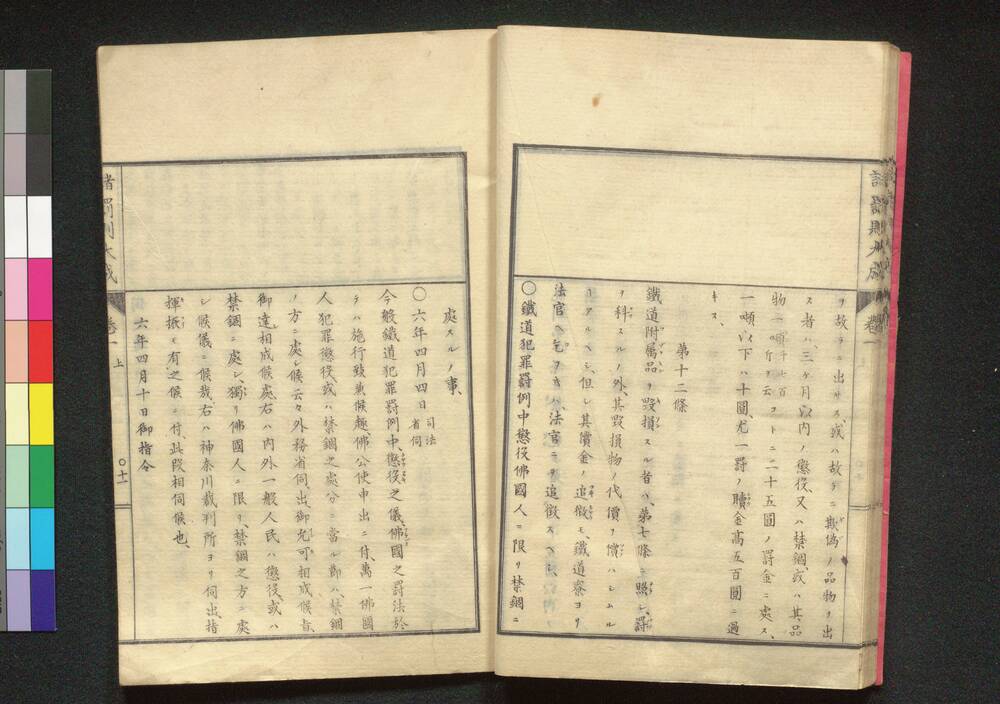 ヲ故ラニ出サス或ハ故ラニ欺偽ノ品物ヲ出
ス者ハ三ヶ月以内ノ懲役又ハ禁錮或ハ其品
物一噸ゴトニ二十五圓ノ罰金ニ處ス
一噸以下ハ十圓尤一罸ノ贖金高五百圓ニ過
キス、
第十二條
鐵道附属品ヲ毀損スル者ハ第七條ニ照シ罸
ヲ科スルノ外其毀損物ノ代價ヲ償ハシムル
コアルヘシ但シ其償金ノ追徴モ鐵道寮ヨリ
法官ヘ乞フキハ法官ニテ追徴スヘシ
〇鐵道犯罪罸例中懲役佛國人ニ限リ禁錮ニ
處スルノ事
〇六年四月四日司法省伺
今般鐵道犯罪罸例中懲役之儀佛國之罸法於
テハ施行致兼候趣佛公使申出ニ付萬一佛國
人犯罪懲役或ハ禁錮之處分ニ當ル節ハ禁錮
ノ方ニ處シ候云々外務省伺出御允可相成候旨
御達相成候處右ハ内外一般人民ハ懲役或ハ
禁錮ニ處シ獨リ佛國人ニ限リ禁錮之方ニ處
シ候儀ニ候哉右ハ神奈川裁判所ヨリ伺出指
揮振モ有之候ニ付此段相伺候也
六年四月十日御指令
卷一
上
〇十一